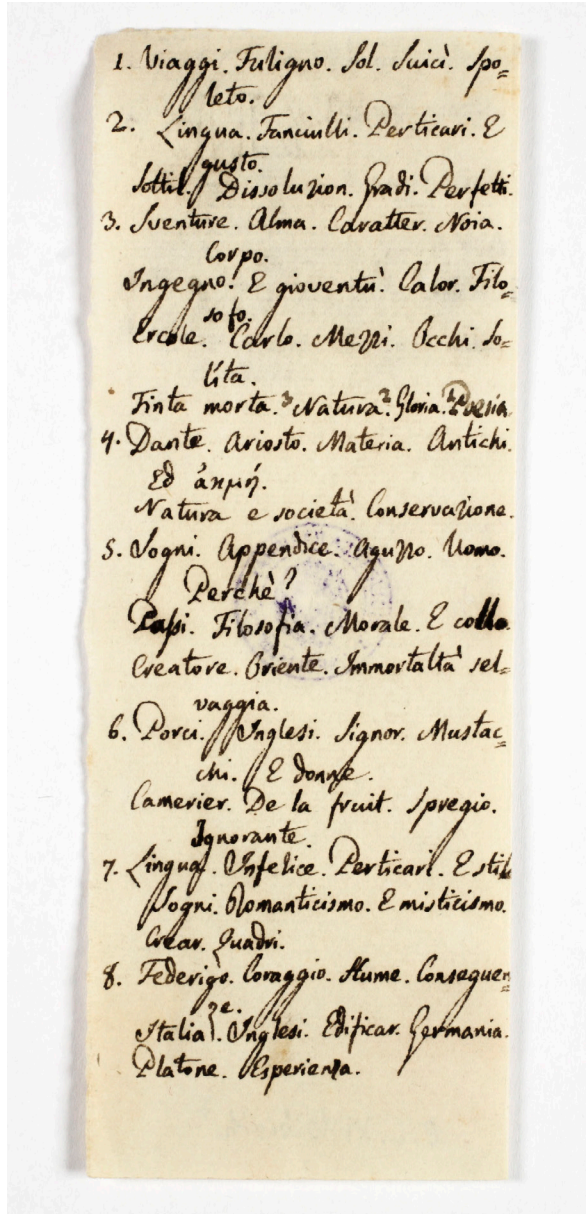 1. Viaggi. Fuligno. Sol. Suici. Spo=
leto.
2. Lingua. Fanciulli. Perticari. E
gusto.
Sottil. Dissoluzion. Gradi. Perfetti.
3. Sventure. Alma. Caratter. Noia.
Corpo.
Ingegno. E gioventù. Calor. Filo=
sofo.
Ercole. Carlo. Mezzi. Occhi. So=
lita.
Finta morta. 3 Natura. 2 Gloria. 1 Poesia.
4. Dante. Ariosto. Materia. Antichi.
Ed ἀκμή.
Natura e società. Conservazione.
5. Sogni. Appendice. Aguzzo. Uomo.
Perchè?
Passi. Filosofia. Morale. E collo.
Creatore. Oriente. Immortaltà sel=
vaggia.
6. Porci. Inglesi. Signor. Mustac=
chi. E donne.
Camerier. De la fruit. Spregio.
Ignorante.
7. Lingua. Infelice. Perticari. E stil
Sogni. Romanticismo. E misticismo.
Crear. Quadri.
8. Federigo. Coraggio. Hume. Conseguen=
ze.
Italia. Inglesi. Edificar. Germania.
Platone. Esperienza.